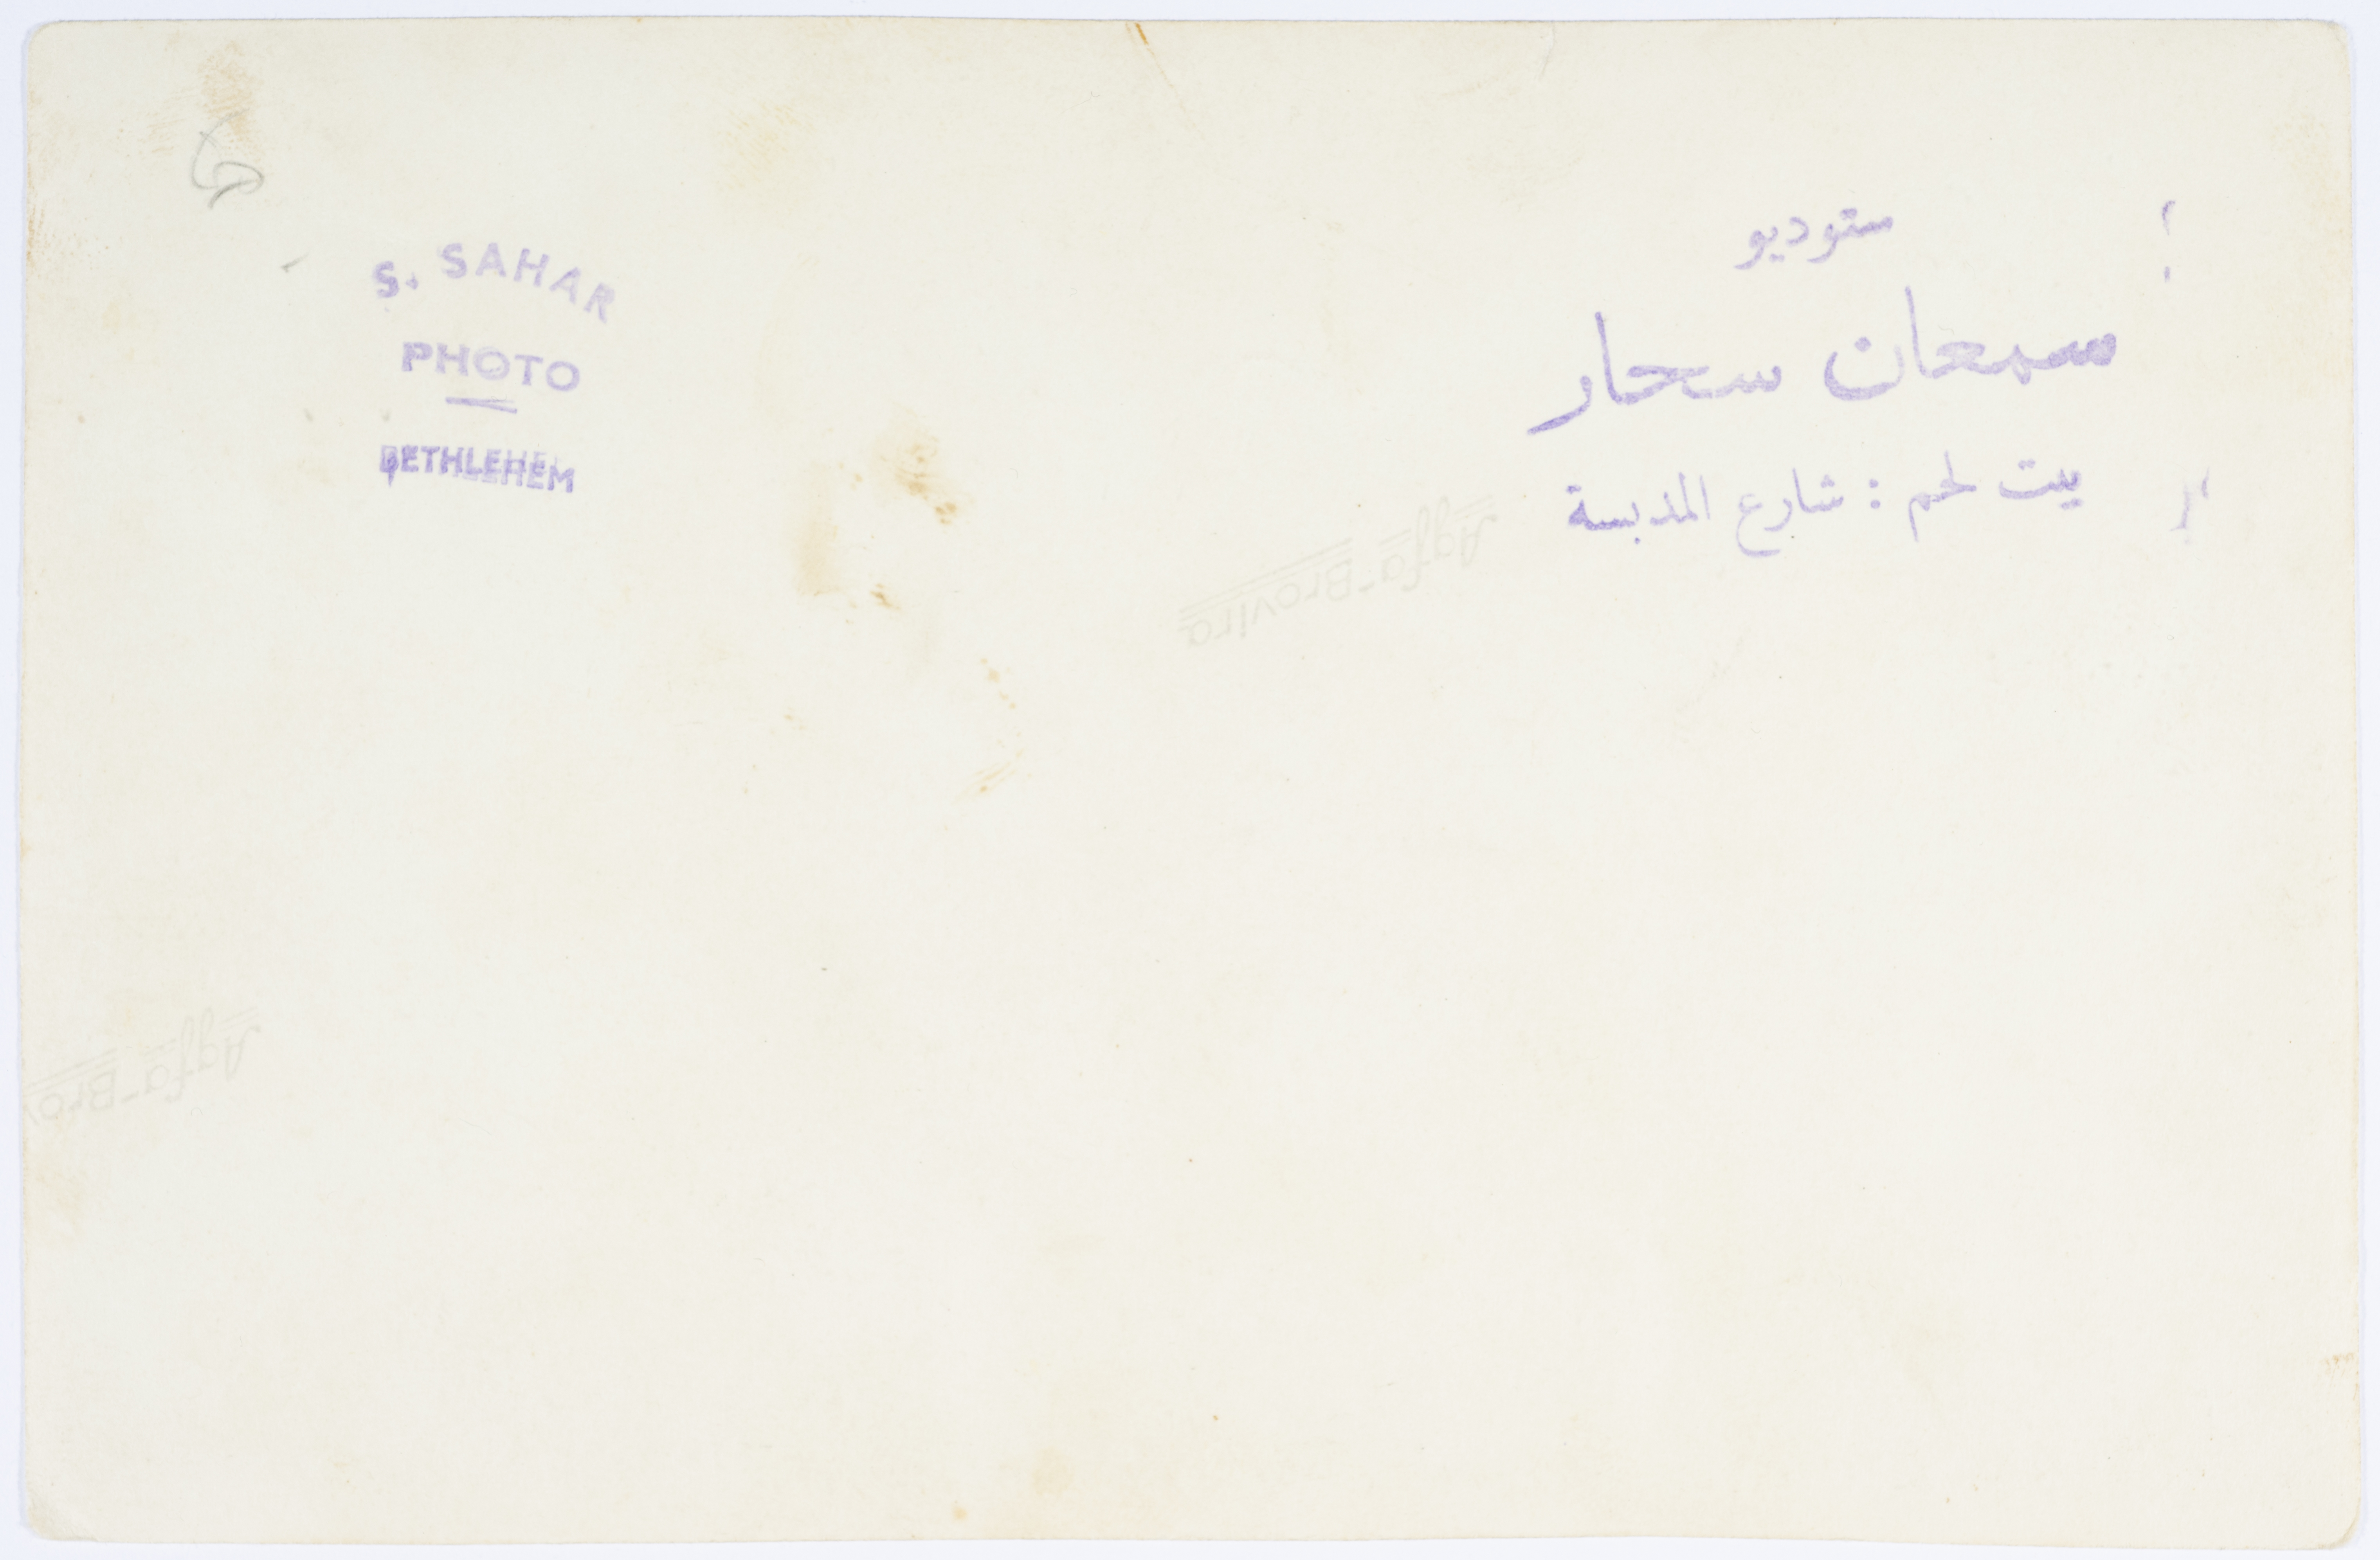 S. SAHAR
PHOTO
BETHLEHEM
ستوديو
سمعان سحار
بيت لحم : شارع المدبسة
Agfa-Brovira
Agfa-Brov